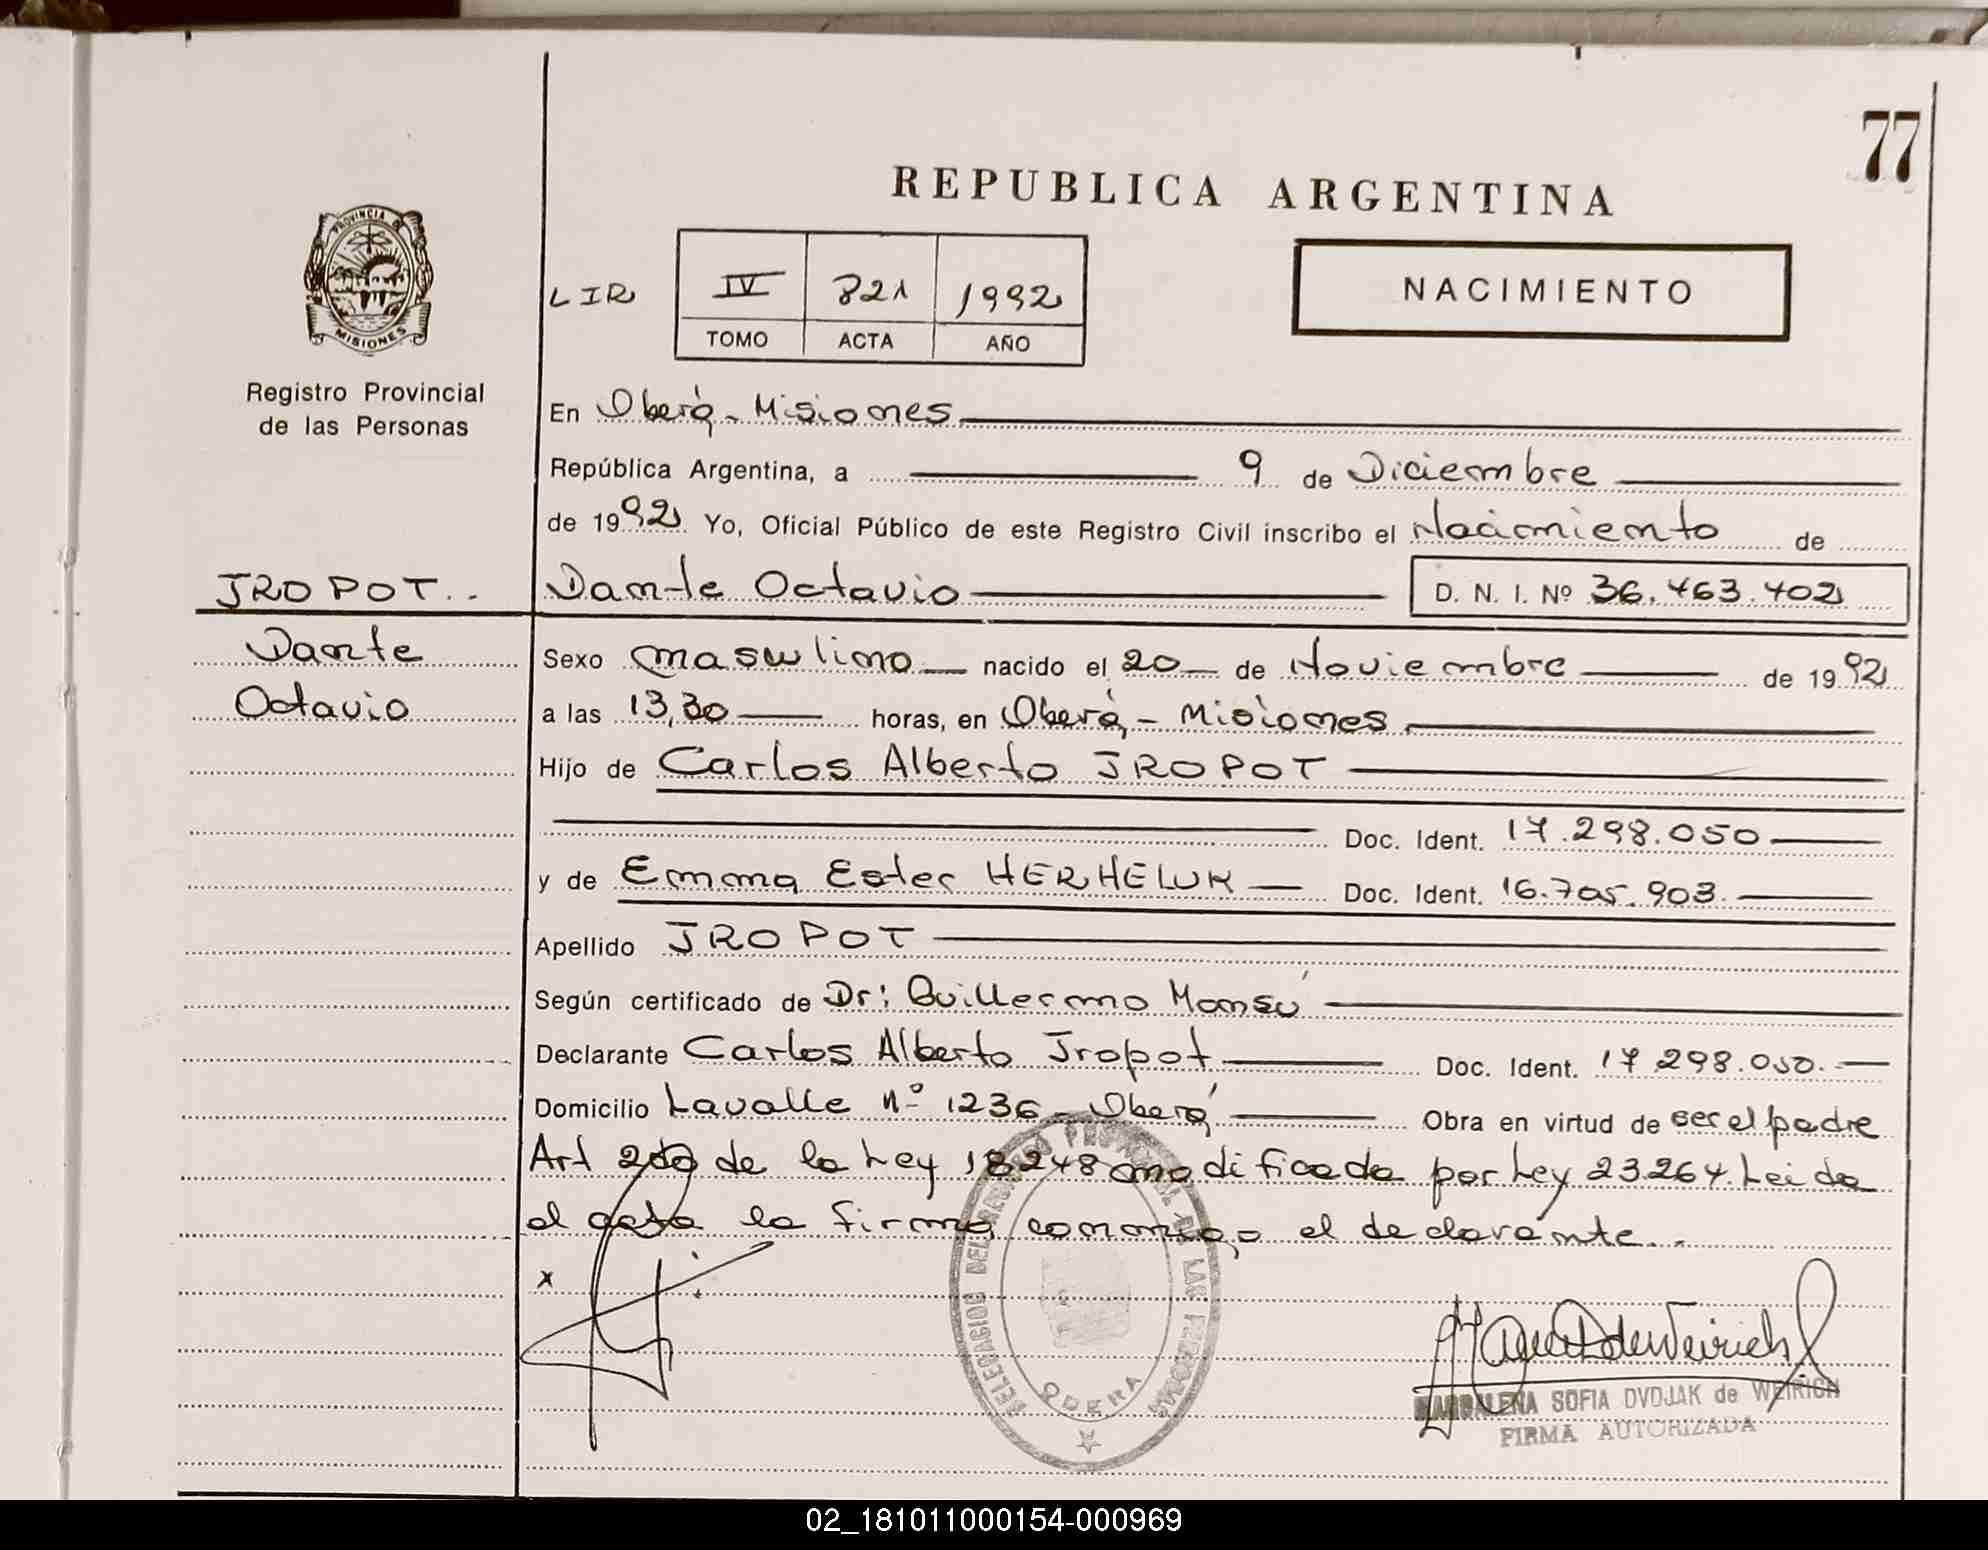 77
REPUBLICA ARGENTINA
PROVINCIA DE
MISIONES
Registro Provincial
de las Personas
LIR
IV 821 1992
TOMO ACTA AÑO
NACIMIENTO
En Oberá - Misiones
República Argentina, a 9 de Diciembre
de 1992 Yo, Oficial Público de este Registro Civil inscribo el Nacimiento de
JROPOT.. Dante Octavio D. N. I. Nº 36.463.402
Dante
Octavio
Sexo masculino nacido el 20 de Noviembre de 1992
a las 13,30 horas, en Oberá, - Misiones
Hijo de Carlos Alberto JROPOT
Doc. Ident. 17.298.050
y de Emma Ester HERHELUK Doc. Ident. 16.705.903.
Apellido JROPOT
Según certificado de Dr: Guillermo Monsú
Declarante Carlos Alberto Jropot Doc. Ident. 17.298.050.-
Domicilio Lavalle Nº 1236 - Oberá Obra en virtud de ser el padre
Art 2do de la Ley 18248 modificada por Ley 23.264. Leida
el acta la firma conmigo el declarante..
x
DELEGACION DEL REGISTRO PROVINCIAL DE LAS PERSONAS
OBERA
MAGDALENA SOFIA DVOJAK de WEIRICH
FIRMA AUTORIZADA
02_181011000154-000969